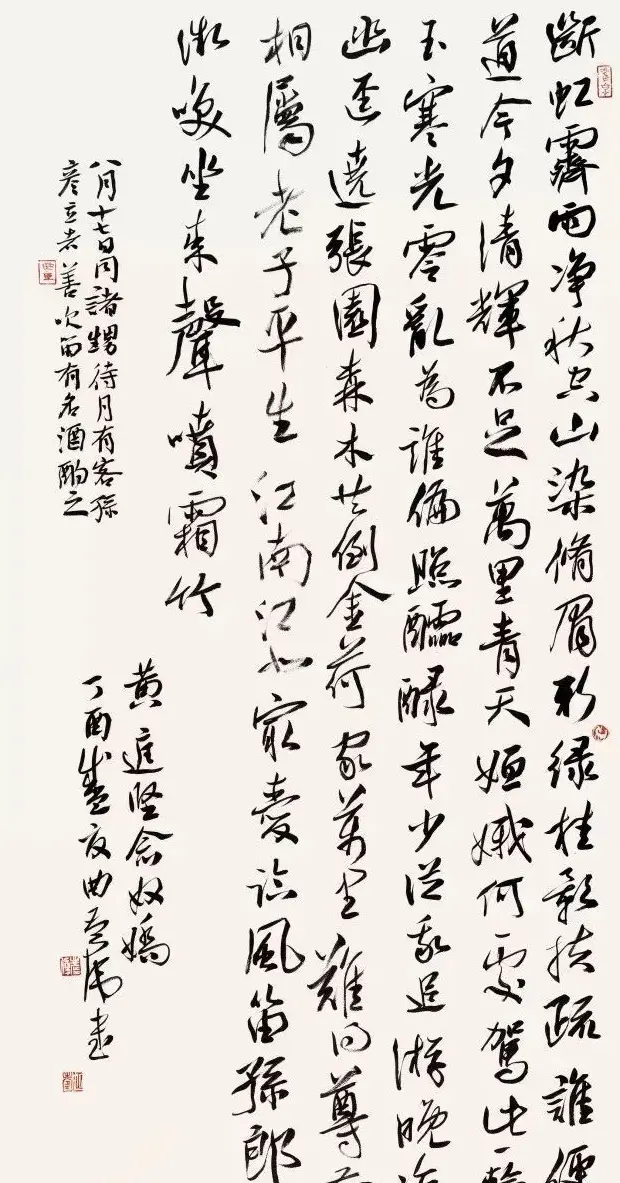 斷虹霽雨净秋空山染脩眉新绿桂影扶疏誰便
道今夕清輝不足萬里青天姮娥何處駕此一輪
玉寒光零亂為誰偏照醽醁年少從我追游晚
幽逕遶張園森木共倒金荷家萬里難得尊前
相屬老子平生江南江北最愛臨風笛孫郎
微笑坐来聲噴霜竹
八月十七日同諸甥待月有客孫
彦立者善吹笛有名酒酌之
黄庭坚念奴嬌
丁酉盛夏曲書